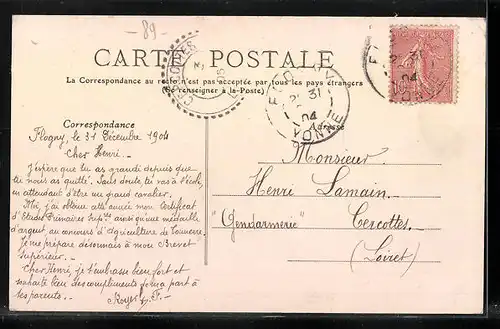 89
CARTE POSTALE
La Correspondance au recto n'est pas acceptée par tous les pays étrangers
(Se renseigner à la Poste)
CERCOTTES
FLOGNY
31
04
YONNE
Correspondance
Adresse
Flogny, le 31 Décembre 1904
Cher Henri.-
J'espère que tu as grandi depuis que
tu nous as quitté. Sans doute, tu vas à l'école,
en attendant d'être un grand cavalier.
Moi, j'ai obtenu cette année mon Certificat
d'Etudes Primaires Supres ainsi qu'une médaille
d'argent au concours d'Agriculture de Tonnerre.
Je me prépare désormais à mon Brevet
Supérieur.-
Cher Henri, je t'embrasse bien fort et
souhaite bien des compliments de ma part à
tes parents.-
Monsieur
Henri Lamain
"Gendarmerie" Cercottes
(Loiret)